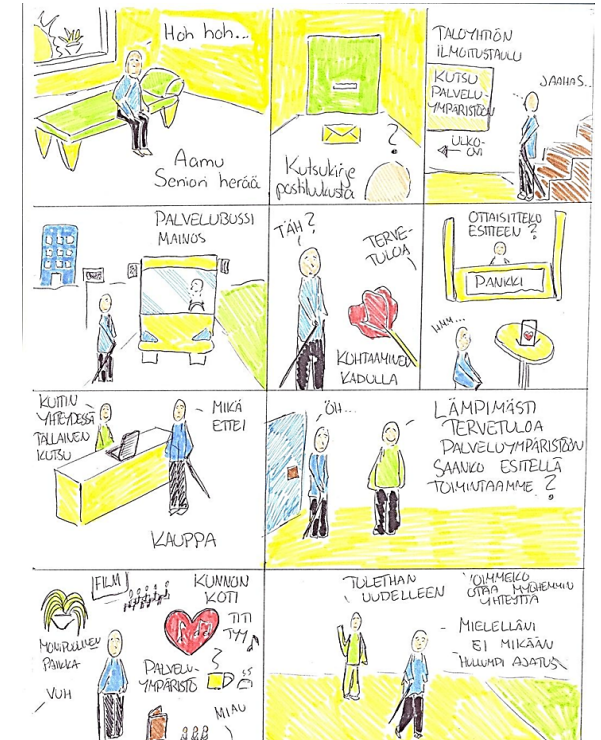 Hoh hoh...
Aamu
Seniori herää
?
Kutsukirje
postiluukusta
TALOYHTIÖN
ILMOITUSTAULU
KUTSU
PALVELU-
YMPÄRISTÖÖN
JAAHAS..
ULKO-
OVI
PALVELUBUSSI
MAINOS
TÄH?
TERVE-
TULOA
KOHTAAMINEN
KADULLA
OTTAISITTEKO
ESITTEEN?
PANKKI
HMM...
KUITIN
YHTEYDESSÄ
TÄLLAINEN
KUTSU
MIKÄ
ETTEI
KAUPPA
ÖH...
LÄMPIMÄSTI
TERVETULOA
PALVELUYMPÄRISTÖÖN
SAANKO ESITELLÄ
TOIMINTAAMME?
FILM
KUNNON
KOTI
TITI
TYY
MONIPUOLINEN
PAIKKA
PALVELU-
YMPÄRISTÖ
?
VUH
MIAU
TULETHAN
UUDELLEEN
VOIMMEKO
OTAA MYÖHEMMIN
YHTEYTTÄ
MIELELLÄNI
EI MIKÄÄN
HULLUMPI AJATUS